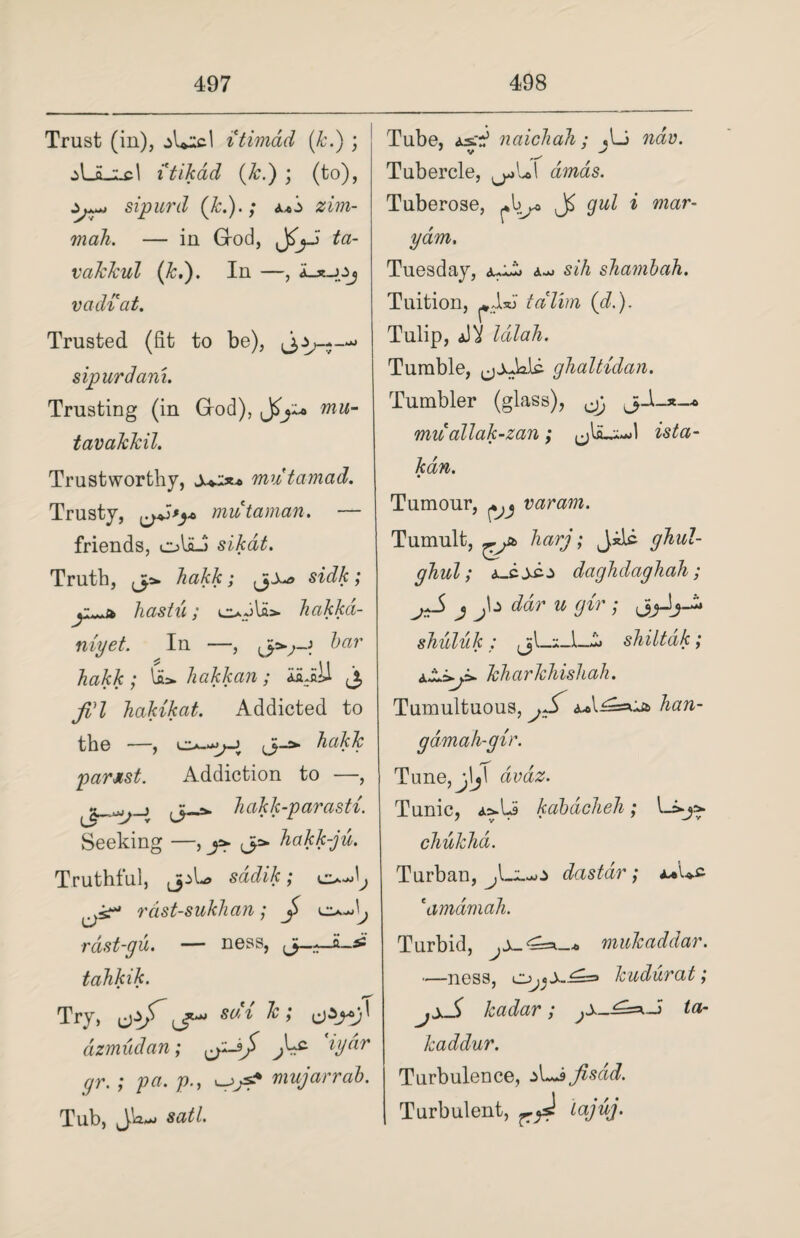 497
498
Trust (in), اعتماد i'timád (k.) ;
اعتقاد i'tikád (k.) ; (to),
سپرد sipurd (k.). ; ذمه zim-
mah. — in God, توکل ta-
vakkul (k.). In —, وديعة
vadi'at.
Trusted (fit to be), سپردنی
sipurdani.
Trusting (in God), متوکل mu-
tavakkil.
Trustworthy, معتمد mu'tamad.
Trusty, مؤتمن mu'taman. —
friends, ثقات sikát.
Truth, حق hakk ; صدق sidk ;
هستو hastú ; حقانیت hakká-
niyet. In —, بر حق bar
hakk ; حقا hakkan ; فی الحقيقة
fi'l hakikat. Addicted to
the —, حق پرست hakk
parast. Addiction to —,
حق پرستی hakk-parastí.
Seeking —, حق جو hakk-jú.
Truthful, صادق sádik ; راست
سخن rást-sukhan ; راست گو
rást-gú. — ness, تحقيق
tahkik.
Try, سعی کردن sa'i k ; آزمودن
ázmúdan ; عیار گرفتن 'iyár
gr. ; pa. p., مجرب mujarrab.
Tub, سطل satl.
Tube, نیچه naichah ; ناو náv.
Tubercle, آماس ámás.
Tuberose, گل مریام gul i mar-
yám.
Tuesday, سه شنبه sih shambah.
Tuition, تعليم ta'lím (d.).
Tulip, لاله lálah.
Tumble, غلطیدن ghaltídan.
Tumbler (glass), معلق زن
mu'allak-zan ; استقان ista-
kán.
Tumour, ورم varam.
Tumult, هرج harj ; غلغل ghul-
ghul ; دغدغه daghdaghah ;
دار و گیر dár u gír ; شولوق
shúlúk ; شلتاق shilták ;
خرخشه kharkhishah.
Tumultuous, هنگامه گیر han-
gámah-gír.
Tune, آواز áváz.
Tunic, قباچه kabácheh ; چوخا
chúkhá.
Turban, دستار dastár ; عمامه
'amámah.
Turbid, مكدر mukaddar.
—ness, كدورت kudúrat ;
کدر kadar ; تكدر ta-
kaddur.
Turbulence, فساد fisád.
Turbulent, لجوج lajúj.